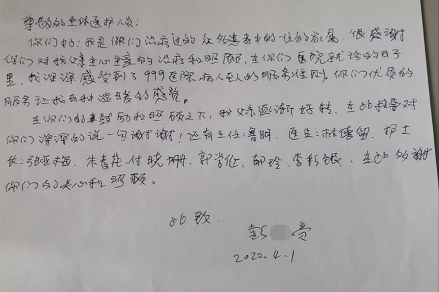 尊敬的全体医护人员:
你们好!我是你们治疗过的众多患者中的一位的家属,很感谢
你们对我父亲全心全意的治疗和照顾,在你们医院就诊的日子
里,我深深感受到了999医院病人至人的服务准则,你们优质的
服务让我有种温暖的感觉。
在你们的照顾之下,我父亲逐渐好转,在此我要对
你们深深的说一句谢谢!还有主任:鲁明,医生:林,护士
长:张,朱春花,付晓珊,郭,郭玲,李,在此多谢
你们的关心和照顾。
此致
彭 贵
2020.4.1